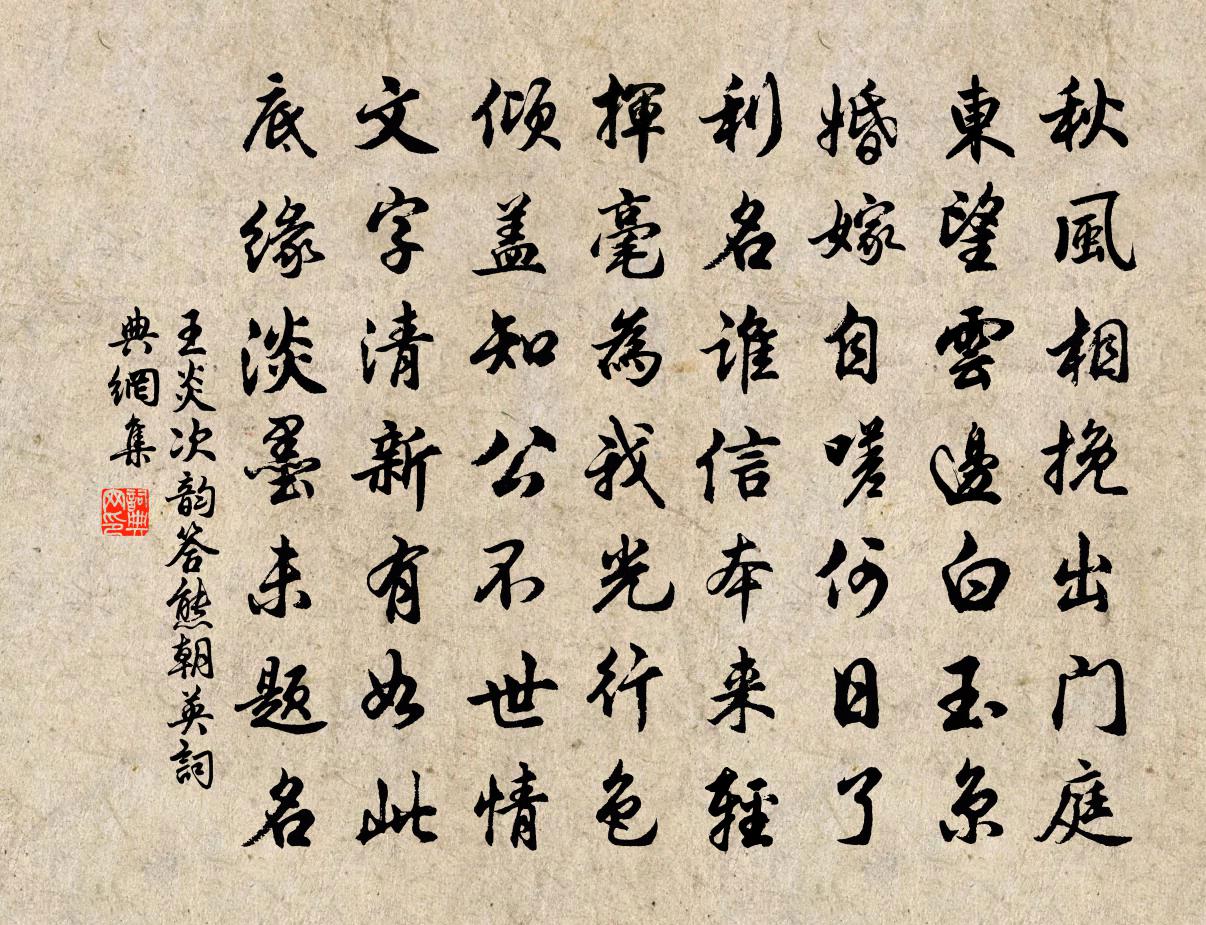 秋風相挽出門庭
東望雲邊白玉京
婚嫁自嗟何日了
利名誰信本来輕
揮毫為我光行色
傾盖知公不世情
文字清新有如此
底緣淡墨未题名
王炎次韵答熊朝英詞
典網集
詞典
网印